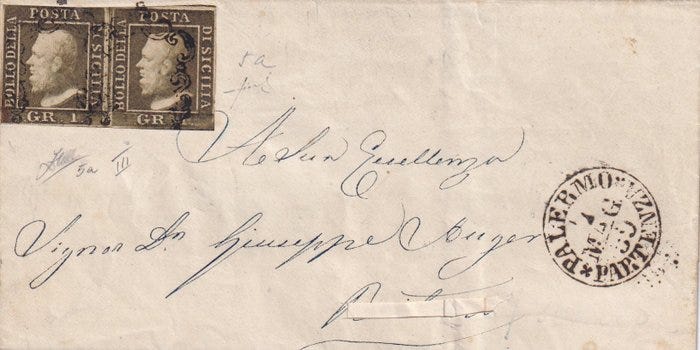 BOLLO DELLA POSTA DI SICILIA
GR. 1.
BOLLO DELLA POSTA DI SICILIA
GR. 1.
5a
5a III
A Sua Eccellenza
Signor Dn Giuseppe
PALERMO PARTENZA
MAG